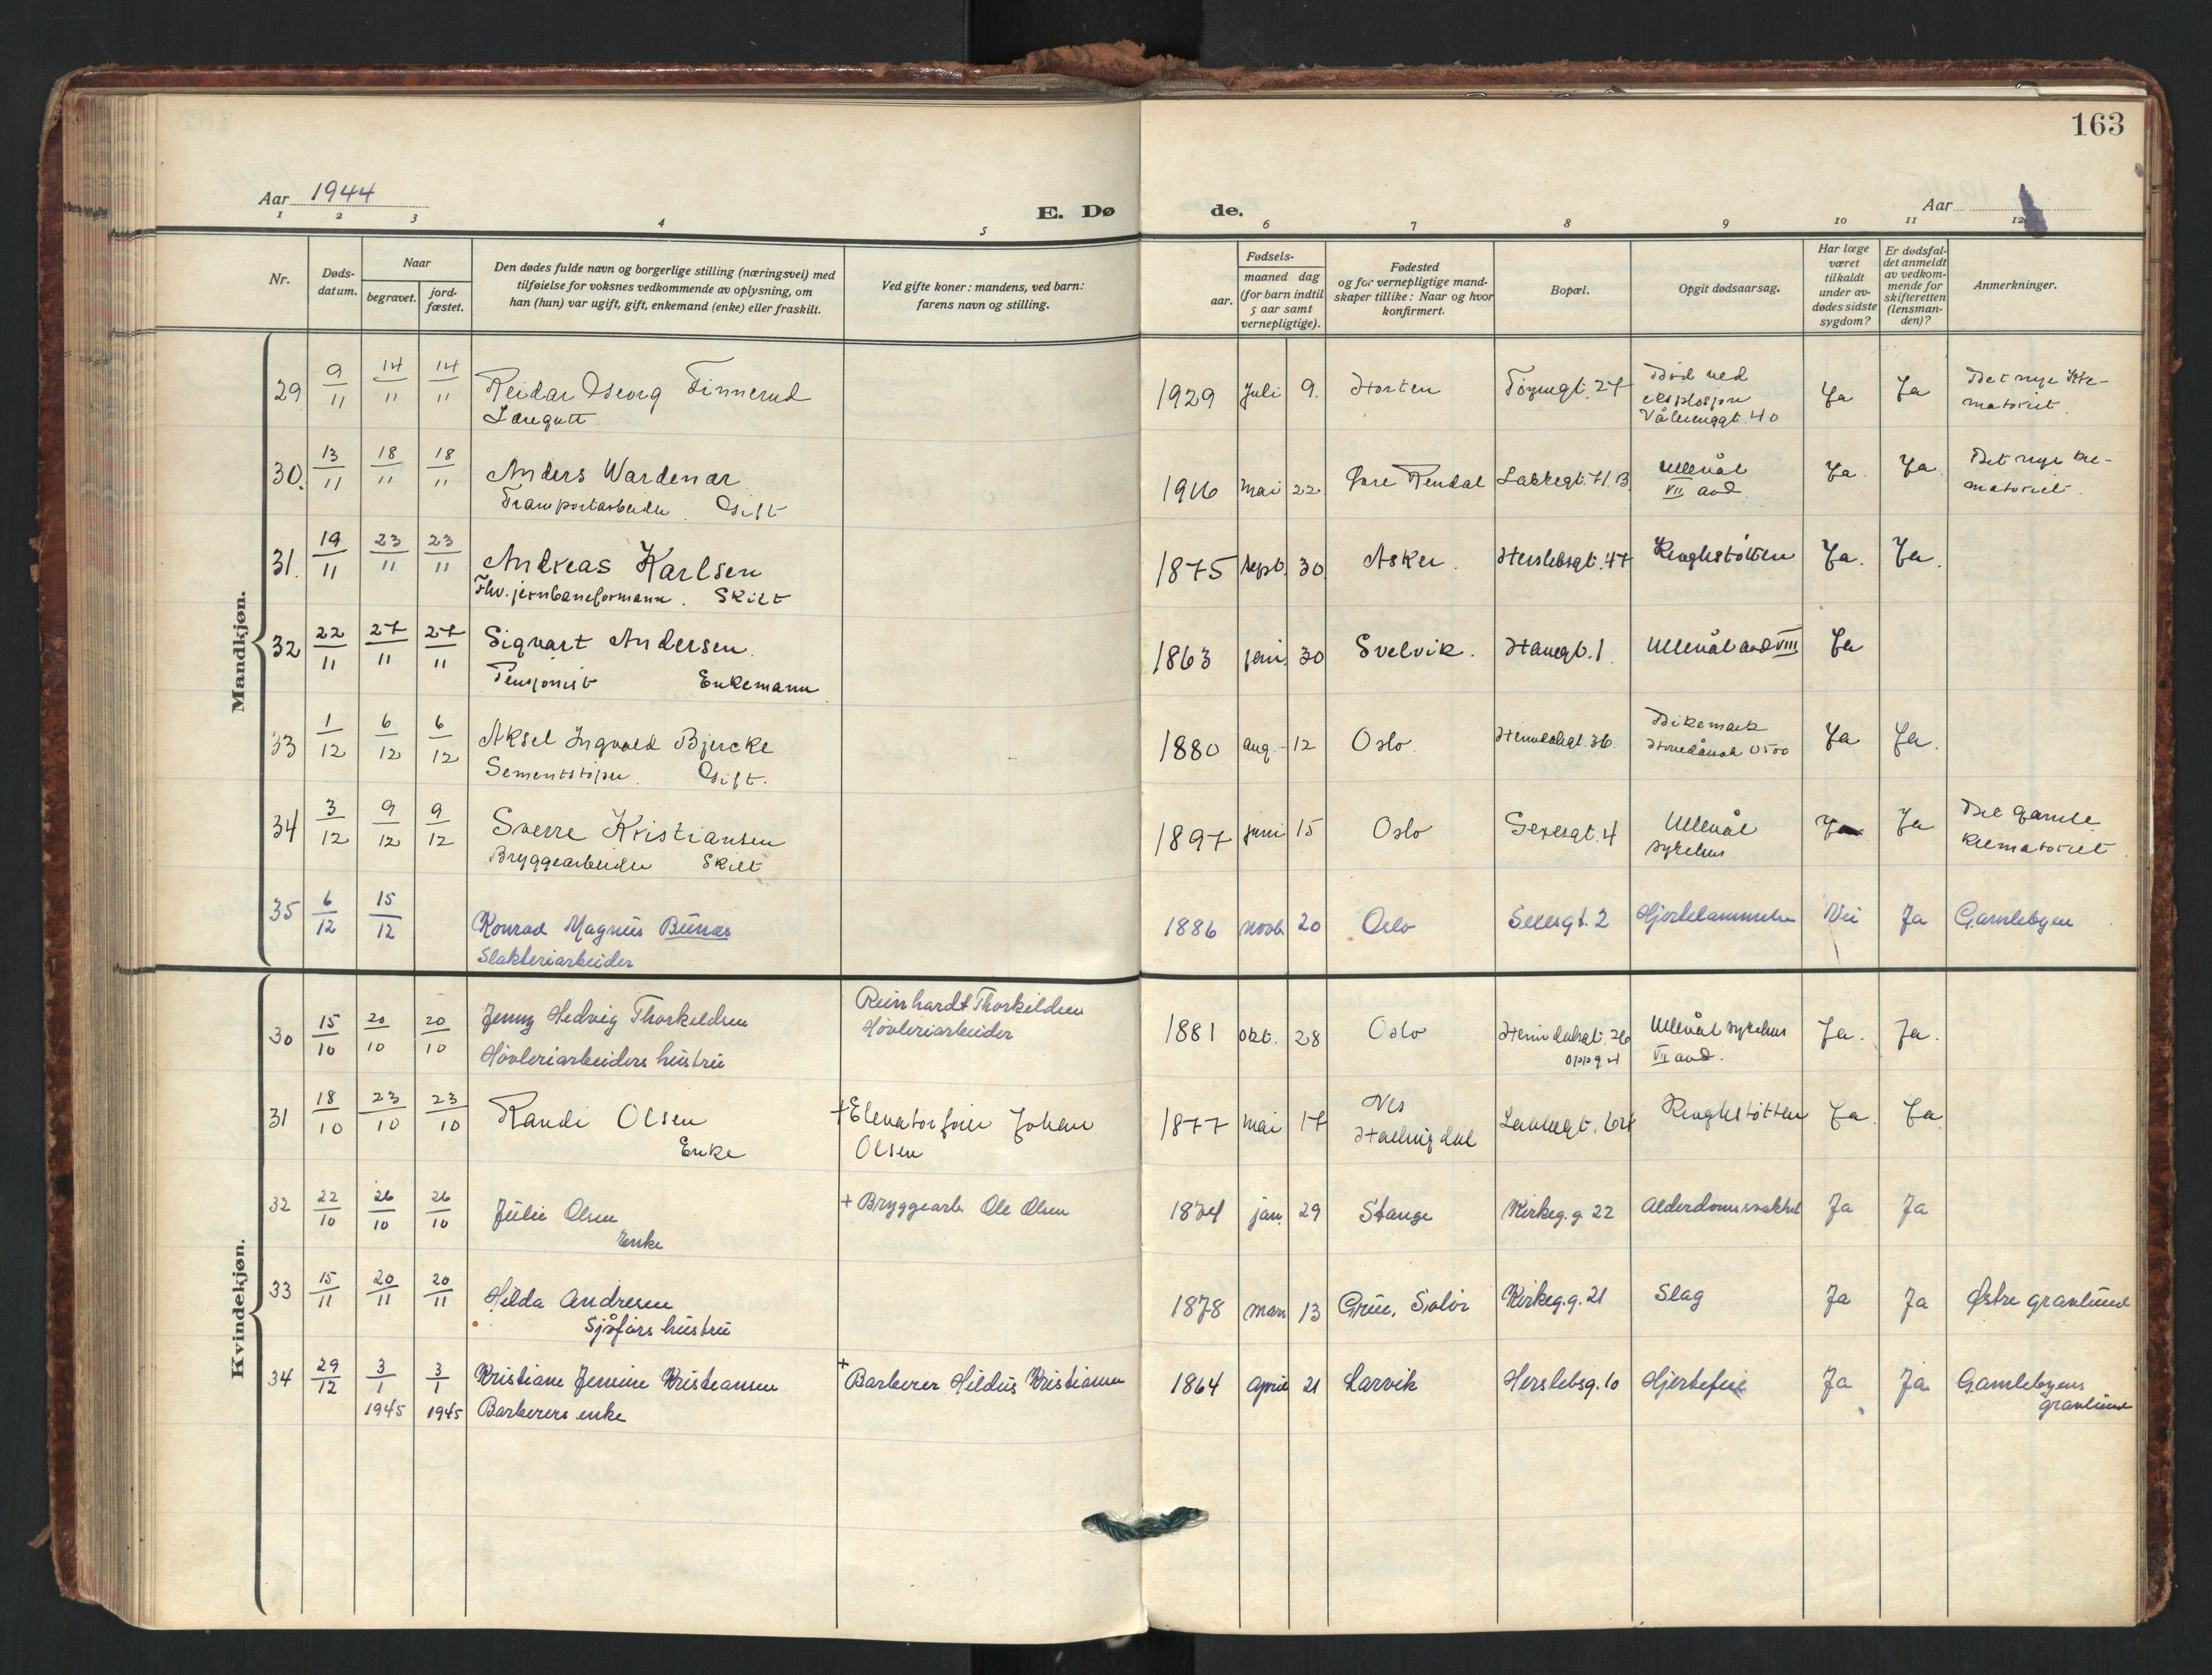 163
Aar 1944
E. Dø
de.
Aar
1 2 3 4 5 6 7 8 9 10 11 12
Nr.
Døds-
datum.
Naar
begravet.
jord-
fæstet.
Den dødes fulde navn og borgerlige stilling (næringsvei) med
tilføielse for voksnes vedkommende av oplysning, om
han (hun) var ugift, gift, enkemand (enke) eller fraskilt.
Ved gifte koner: mandens, ved barn:
farens navn og stilling.
Fødsels-
aar.
maaned dag
(for barn indtil
5 aar samt
vernepligtige).
Fødested
og for vernepligtige mand-
skaper tillike: Naar og hvor
konfirmert.
Bopæl.
Opgit dødsaarsag.
Har læge
været
tilkaldt
under av-
dødes sidste
sygdom?
Er dødsfal-
det anmeldt
av vedkom-
mende for
skifteretten
(lensman-
den)?
Anmerkninger.
Mandkjøn.
29 9/11 14/11 14/11 Reidar Georg Finnerud 1929 Juli 9. Horten Tøyengt. 27 Død ved Ja Ja Det nye Kre-
Læregutt eksplosjon matoriet.
Vålerenggt. 40
30. 13/11 18/11 18/11 Anders Wardenær 1916 mai 22 Øvre Rendal Lakkegt. 71.B. Ullevål Ja. Ja. Det nye kre-
Transportarbeider. Gift VII avd. matoriet.
31. 19/11 23/11 23/11 Andreas Karlsen 1875 sept. 30. Asker. Herslebsgt. 47 Kroghstøtten Ja. Ja.
Fhv. jernbaneformann. Skilt
32 22/11 27/11 27/11 Sigvart Andersen. 1863 juni 30 Svelvik. Hauegt. 1. Ullevål avd VIII Ja
Pensjonist Enkemann
33 1/12 6/12 6/12 Aksel Ingvald Bjercke 1880 aug. 12 Oslo. Heimdalsgt. 36. Dikemark Ja Ja.
Sementstøper. Gift.
34 3/12 9/12 9/12 Sverre Kristiansen 1897 juni 15 Oslo Sexesgt. 4 Ullevål Ja Ja Det gamle
Bryggearbeider Skilt sykehus krematoriet.
35 6/12 15/12 Konrad Magnus Bunæs 1886 novb. 20 Oslo Sexesgt. 2 Hjertelammelse Nei Ja Gamlebyen
Slakteriarbeider
Kvindekjøn.
30 15/10 20/10 20/10 Jenny Hedvig Thorkildsen Reinhardt Thorkildsen 1881 okt. 28 Oslo Heimdalsgt. 26 Ullevål sykehus Ja. Ja.
Høvleriarbeiders hustru Høvleriarbeider oppg 4 VII avd.
31 18/10 23/10 23/10 Randi Olsen + Elevatorfører Johan 1877 mai 17 Nes Lakkegt. 64 Kroghstøtten Ja. Ja.
Enke Olsen Hallingdal
32 22/10 26/10 26/10 Julie Olsen + Bryggearb. Ole Olsen 1874 jan. 29 Stange Kirkeg. g. 22 Alderdomssvakhet Ja Ja
Enke
33 15/11 20/11 20/11 Hilda Andresen 1878 mars 13 Grue, Solør Kirkeg. g. 21 Slag Ja Ja Østre gravlund
Sjåførs hustru
34 29/12 3/1 3/1 Kristiane Jensine Kristiansen + Barberer Hildus Kristiansen 1864 april 21 Larvik Herslebsg. 10 Hjertefeil Ja Ja Gamlebyens
1945 1945 Barberers enke gravlund